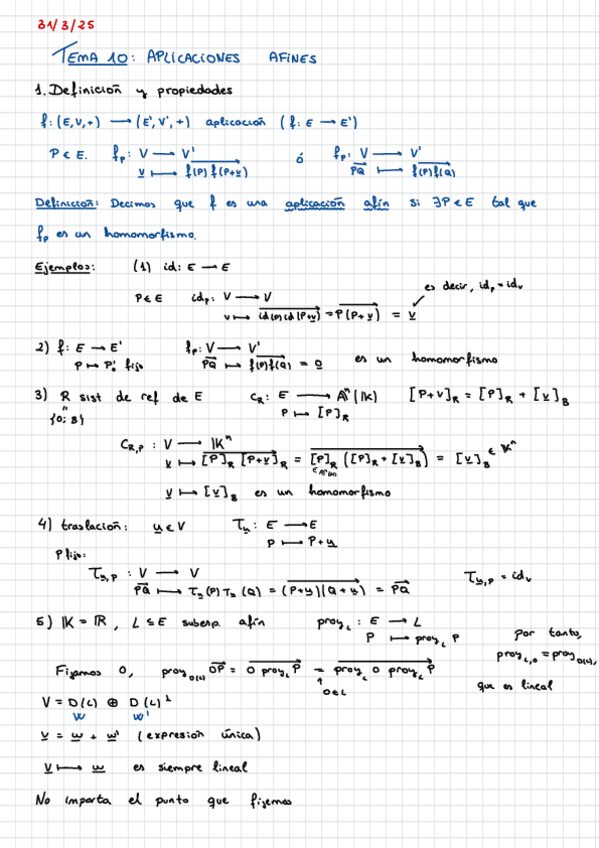 31/3/25
TEMA 10: APLICACIONES AFINES
1. Definición y propiedades
f: (E,V,+) ⟶ (E',V',+) aplicación (f: E ⟶ E')
P ∈ E. f_P: V ⟶ V' ó f_P: V ⟶ V'
v ⟼ f(P) f(P+v) PQ ⟼ f(P) f(Q)
Definición: Decimos que f es una aplicación afín si ∃P ∈ E tal que
f_P es un homomorfismo.
Ejemplos: (1) id: E ⟶ E
es decir, id_P = id_V
P ∈ E id_P: V ⟶ V
v ⟼ id(P) id(P+v) = P(P+v) = v ✓
2) f: E ⟶ E' f_P: V ⟶ V'
P ⟼ P'₀ fijo PQ ⟼ f(P) f(Q) = 0 es un homomorfismo
3) R sist de ref de E C_R: E ⟶ Aⁿ(K) [P+v]_R = [P]_R + [v]_B
{O; B} P ⟼ [P]_R
C_R,P: V ⟶ Kⁿ
v ⟼ [P]_R [P+v]_R = [P]_R ([P]_R + [v]_B) = [v]_B ∈ Kⁿ
∈ Aⁿ(K)
v ⟼ [v]_B es un homomorfismo
4) traslación: u ∈ V T_u: E ⟶ E
P ⟼ P+u
P fijo:
T_u,P: V ⟶ V T_u,P = id_V
PQ ⟼ T_u(P) T_u(Q) = (P+u)(Q+u) = PQ
5) K = R, L ≤ E subesp. afín proy_L: E ⟶ L
P ⟼ proy_L P
Por tanto,
proy_L,O = proy_D(L),
que es lineal
Fijamos O, proy_D(L) OP = O proy_L P = proy_L O proy_L P
↑
O ∈ L
V = D(L) ⊕ D(L)^⊥
W W'
v = w + w' (expresión única)
v ⟼ w es siempre lineal
No importa el punto que fijemos